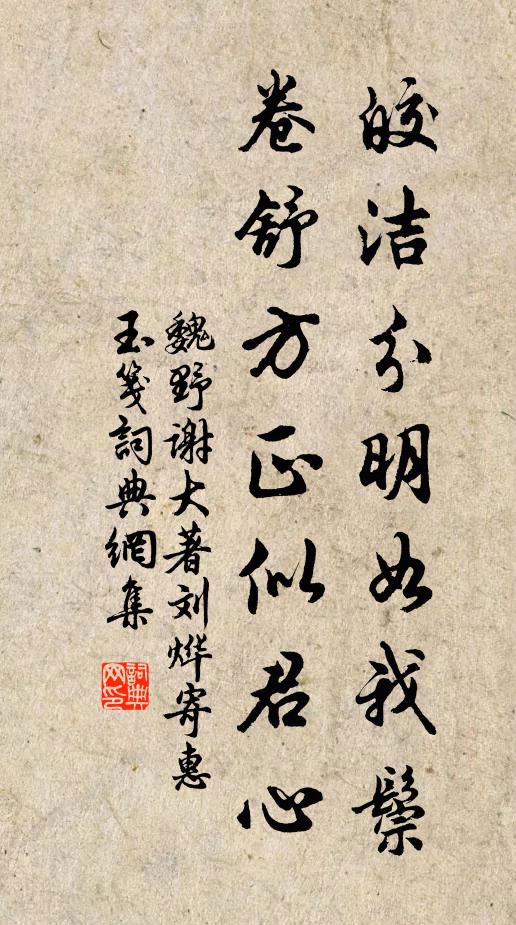 皎洁分明如我鬓
卷舒方正似君心
魏野谢大著刘烨寄惠
玉箋詞典網集
詞典网印